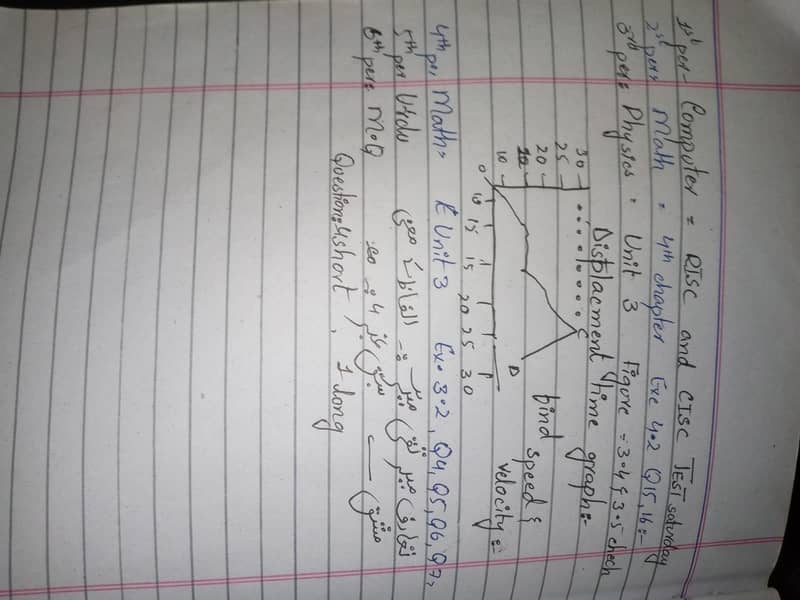 1st per- Computer = RISC and CISC TEST saturday
2st per= Math = 4th chapter Exe 4.2 Q15,16:-
3rd per= Physics = Unit 3 figure = 3.4 & 3.5 chech
Displacment time graph:-
30
25
20
10
0
10 15 15 20 25 30
C
D
find speed &
velocity:-
4th per Math= Unit 3 Ex. 3.2, Q4, Q5, Q6, Q7,
5th per Urdu
6th per= M.Q سبق نمبر 4
مشق
Question:4,short, 1 long